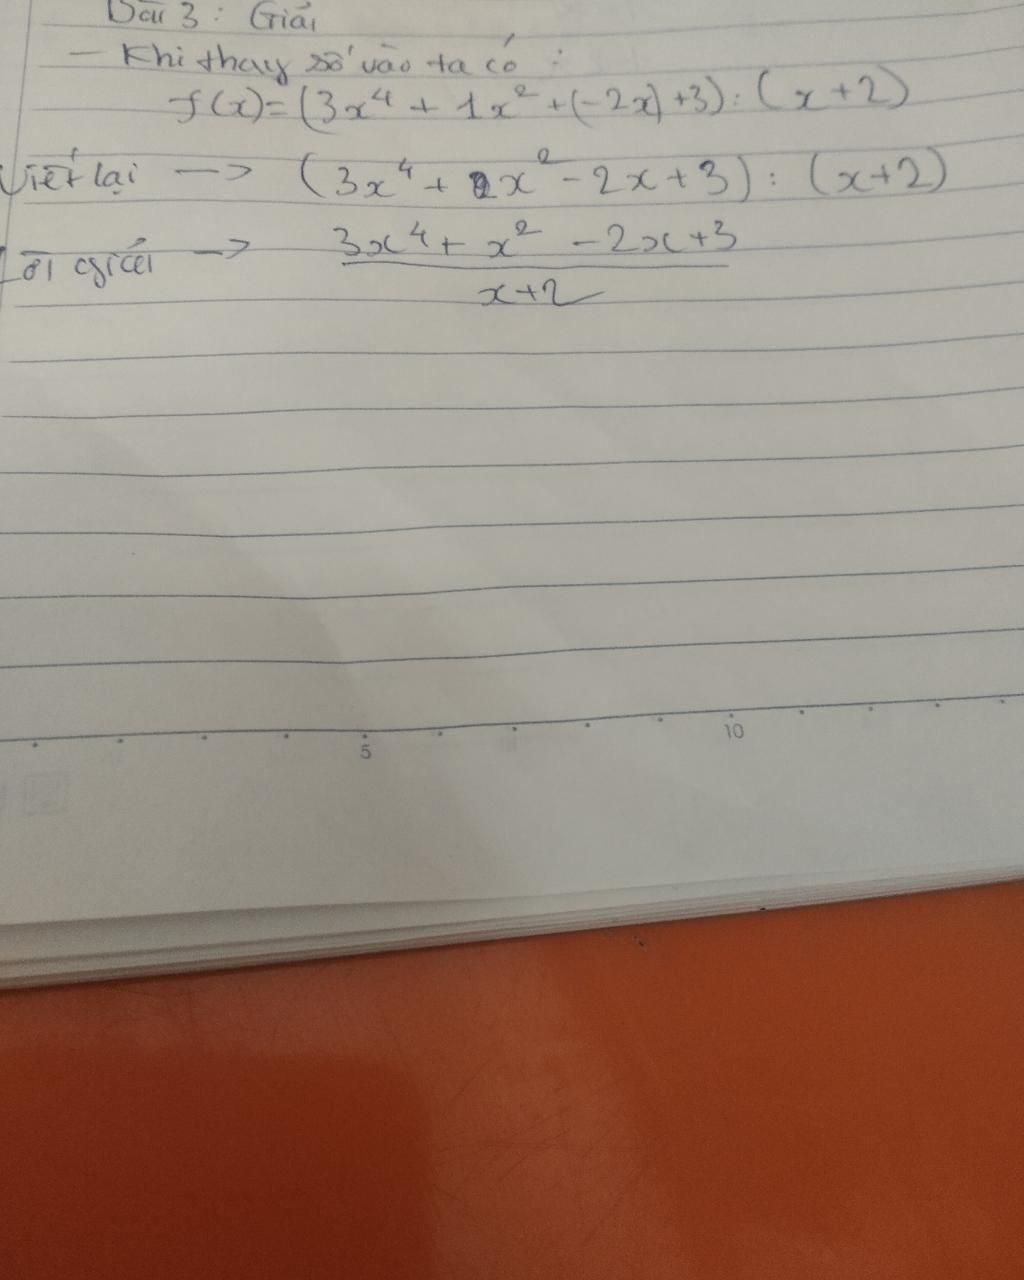 Bài 3: Giải
- Khi thay số vào ta có:
f(x)=(3x⁴ + 1x² +(-2x)+3):(x+2)
Viết lại -> (3x⁴ + x² - 2x + 3) : (x+2)
Lời giải -> 3x⁴ + x² - 2x + 3
x+2
5 10